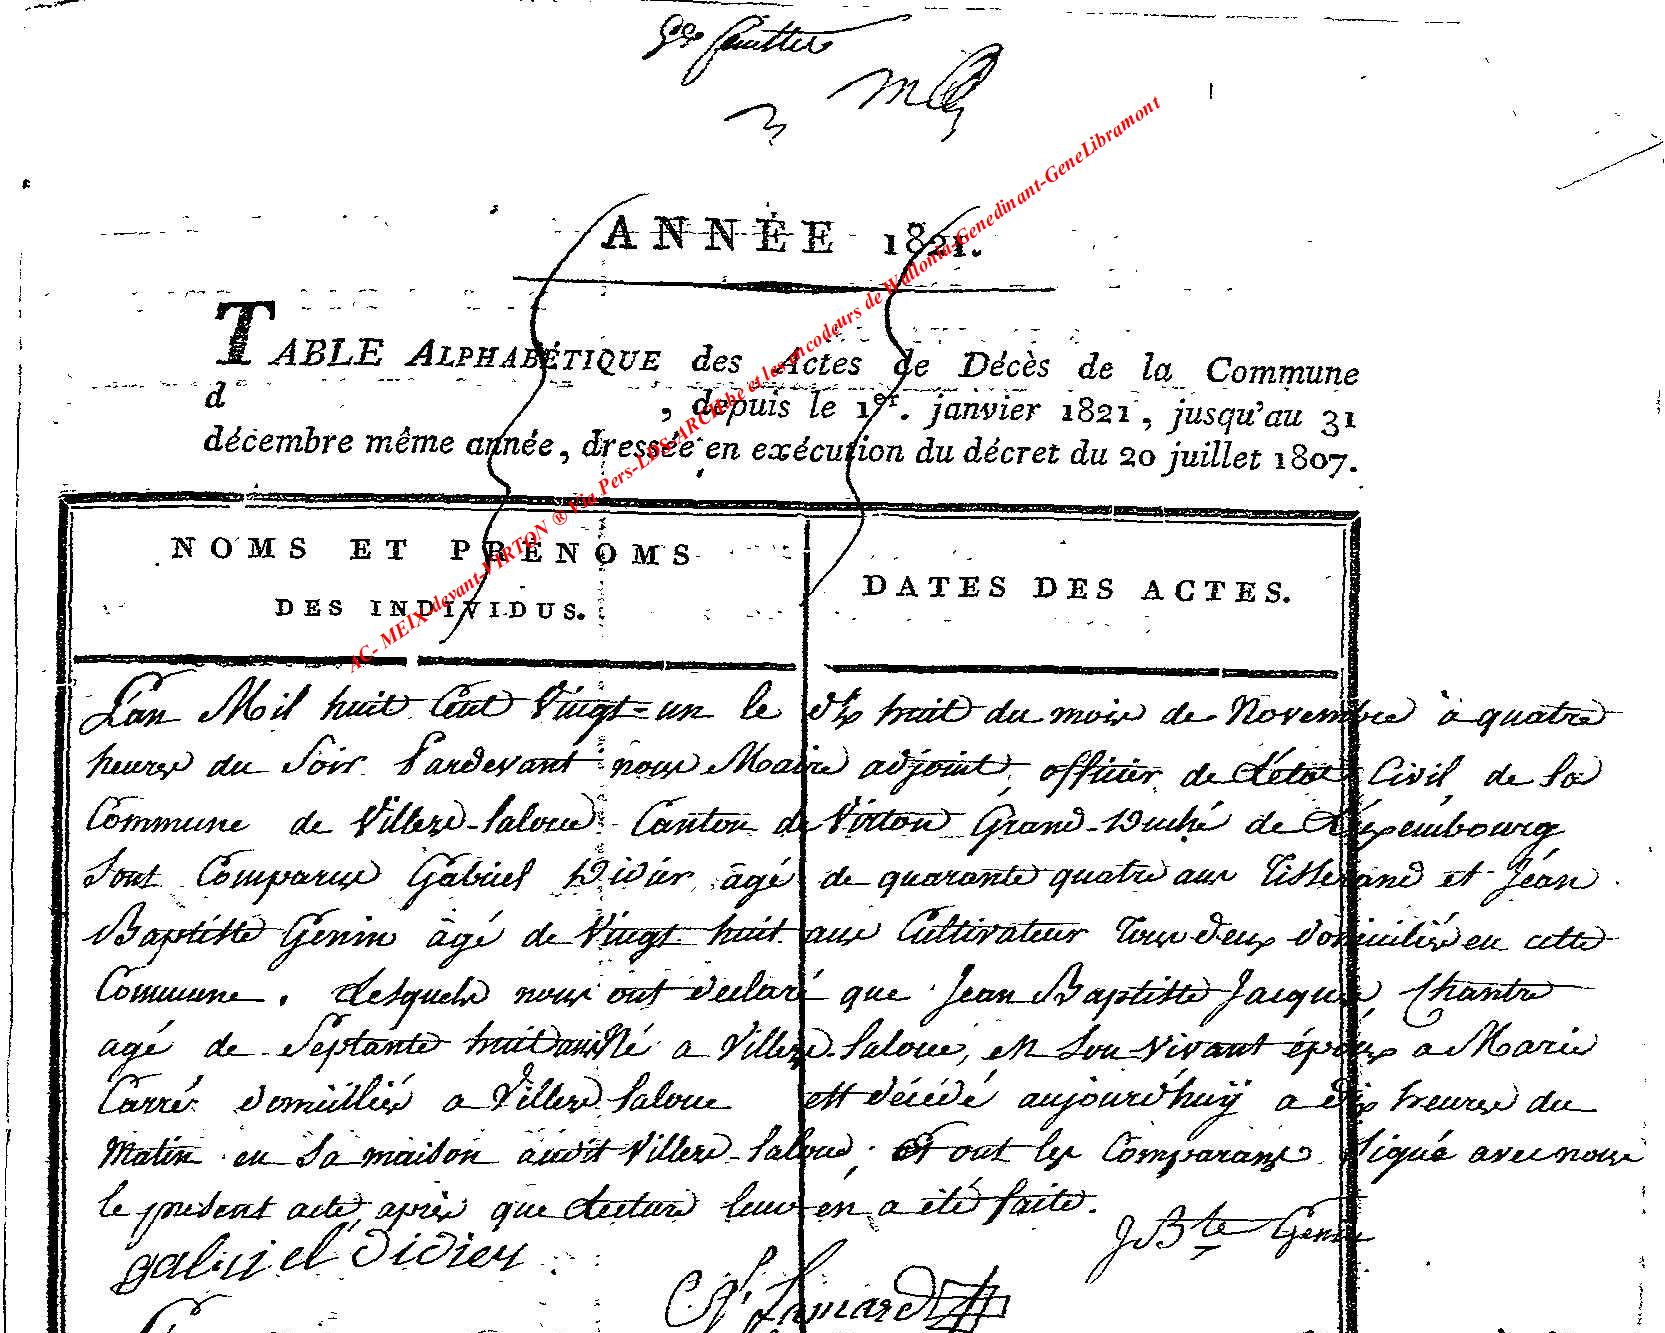 feuillet
ANNÉE 1821.
TABLE ALPHABÉTIQUE des Actes de Décès de la Commune
d , depuis le 1er. janvier 1821, jusqu'au 31
décembre même année, dressée en exécution du décret du 20 juillet 1807.
AC- MEIX-devant-VIRTON ® Via Pers-LUX-ARCH be et les encodeurs de Wallonia-Genedinant-GeneLibramont
NOMS ET PRÉNOMS
DES INDIVIDUS.
DATES DES ACTES.
L'an Mil huit Cent Vingt-un le dix huit du mois de Novembre à quatre
heures du Soir Pardevant nous Maire adjoint, officier de L'état Civil de la
Commune de Villers-laloue Canton de Virton Grand-Duché de Luxembourg
Sont Comparus Gabriel Didier âgé de quarante quatre ans Tisserand et Jéan
Baptiste Genin âgé de Vingt huit ans Cultivateur Tous deux domiciliés en cette
Commune. Lesquels nous ont declaré que Jean Baptiste Jacques, Chantre
agé de Septante huit ans Né a Villers-laloue, en Son vivant époux a Marie
Carré domicilié a Villers-laloue est décédé aujourd'huÿ a dix heures du
Matin en Sa maison audit Villers-laloue; Et ont les Comparans Signé avec nous
le présent acte après que Lecture leur en a été faite.
gabriel didier
J Bte Genin
Lamard